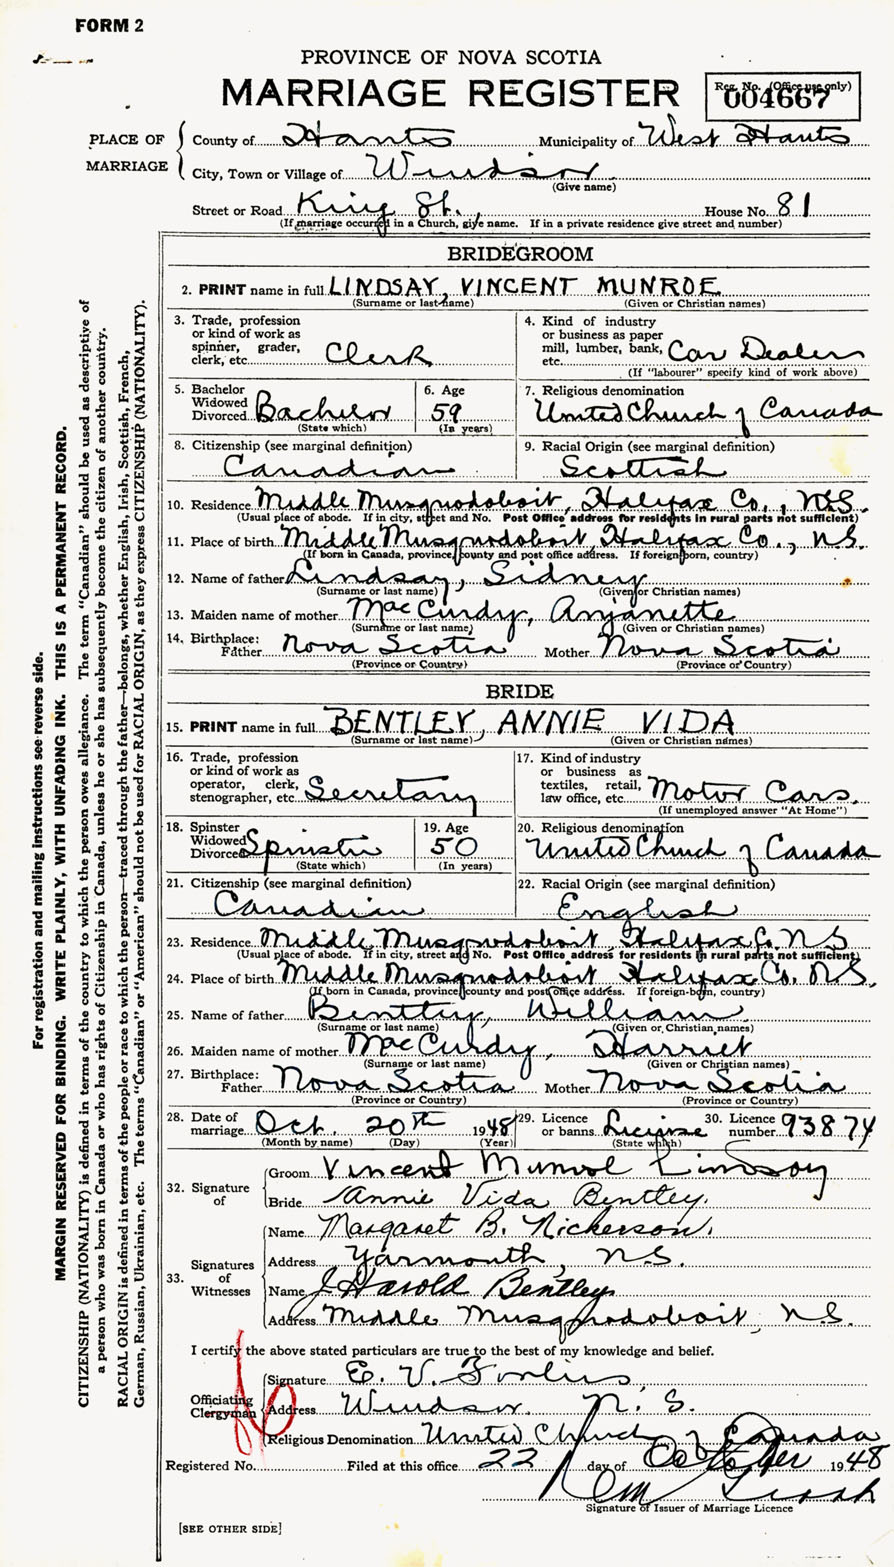 FORM 2
PROVINCE OF NOVA SCOTIA
MARRIAGE REGISTER
Reg. No. (Office use only)
004667
PLACE OF MARRIAGE
County of Hants Municipality of West Hants
City, Town or Village of Windsor
(Give name)
Street or Road King St., House No. 81
(If marriage occurred in a Church, give name. If in a private residence give street and number)
BRIDEGROOM
2. PRINT name in full LINDSAY, VINCENT MUNROE
(Surname or last name) (Given or Christian names)
3. Trade, profession or kind of work as spinner, grader, clerk, etc. Clerk
4. Kind of industry or business as paper mill, lumber, bank, etc. Car Dealers
(If "labourer" specify kind of work above)
5. Bachelor Widowed Divorced Bachelor
(State which)
6. Age 59
(In years)
7. Religious denomination United Church of Canada
8. Citizenship (see marginal definition) Canadian
9. Racial Origin (see marginal definition) Scottish
10. Residence Middle Musquodoboit, Halifax Co., N.S.
(Usual place of abode. If in city, street and No. Post Office address for residents in rural parts not sufficient)
11. Place of birth Middle Musquodoboit, Halifax Co., N.S.
(If born in Canada, province, county and post office address. If foreign-born, country)
12. Name of father Lindsay, Sidney
(Surname or last name) (Given or Christian names)
13. Maiden name of mother MacCurdy, Anjanette
(Surname or last name) (Given or Christian names)
14. Birthplace: Father Nova Scotia Mother Nova Scotia
(Province or Country) (Province or Country)
BRIDE
15. PRINT name in full BENTLEY, ANNIE VIDA
(Surname or last name) (Given or Christian names)
16. Trade, profession or kind of work as operator, clerk, stenographer, etc. Secretary
17. Kind of industry or business as textiles, retail, law office, etc. Motor Cars.
(If unemployed answer "At Home")
18. Spinster Widowed Divorced Spinster
(State which)
19. Age 50
(In years)
20. Religious denomination United Church of Canada
21. Citizenship (see marginal definition) Canadian
22. Racial Origin (see marginal definition) English
23. Residence Middle Musquodoboit, Halifax Co. N.S
(Usual place of abode. If in city, street and No. Post Office address for residents in rural parts not sufficient)
24. Place of birth Middle Musquodoboit Halifax Co. N.S.
(If born in Canada, province, county and post office address. If foreign-born, country)
25. Name of father Bentley, William
(Surname or last name) (Given or Christian names)
26. Maiden name of mother MacCurdy, Harriet
(Surname or last name) (Given or Christian names)
27. Birthplace: Father Nova Scotia Mother Nova Scotia
(Province or Country) (Province or Country)
28. Date of marriage Oct. 20th 1948
(Month by name) (Day) (Year)
29. Licence or banns License
(State which)
30. Licence number 93874
32. Signature of
Groom Vincent Munroe Lindsay
Bride Annie Vida Bentley.
33. Signatures of Witnesses
Name Margaret B. Nickerson.
Address Yarmouth, N.S.
Name J. Harold Bentley
Address Middle Musquodoboit, N.S.
I certify the above stated particulars are true to the best of my knowledge and belief.
Officiating Clergyman
Signature E. V.
Address Windsor. N. S.
Religious Denomination United Church of Canada
Registered No. Filed at this office 22 day of October 1948
Signature of Issuer of Marriage Licence
[SEE OTHER SIDE]
For registration and mailing instructions see reverse side.
MARGIN RESERVED FOR BINDING. WRITE PLAINLY, WITH UNFADING INK. THIS IS A PERMANENT RECORD.
CITIZENSHIP (NATIONALITY) is defined in terms of the country to which the person owes allegiance. The term "Canadian" should be used as descriptive of
a person who was born in Canada or who has rights of Citizenship in Canada, unless he or she has subsequently become the citizen of another country.
RACIAL ORIGIN is defined in terms of the people or race to which the person—traced through the father—belongs, whether English, Irish, Scottish, French,
German, Russian, Ukrainian, etc. The terms "Canadian" or "American" should not be used for RACIAL ORIGIN, as they express CITIZENSHIP (NATIONALITY).